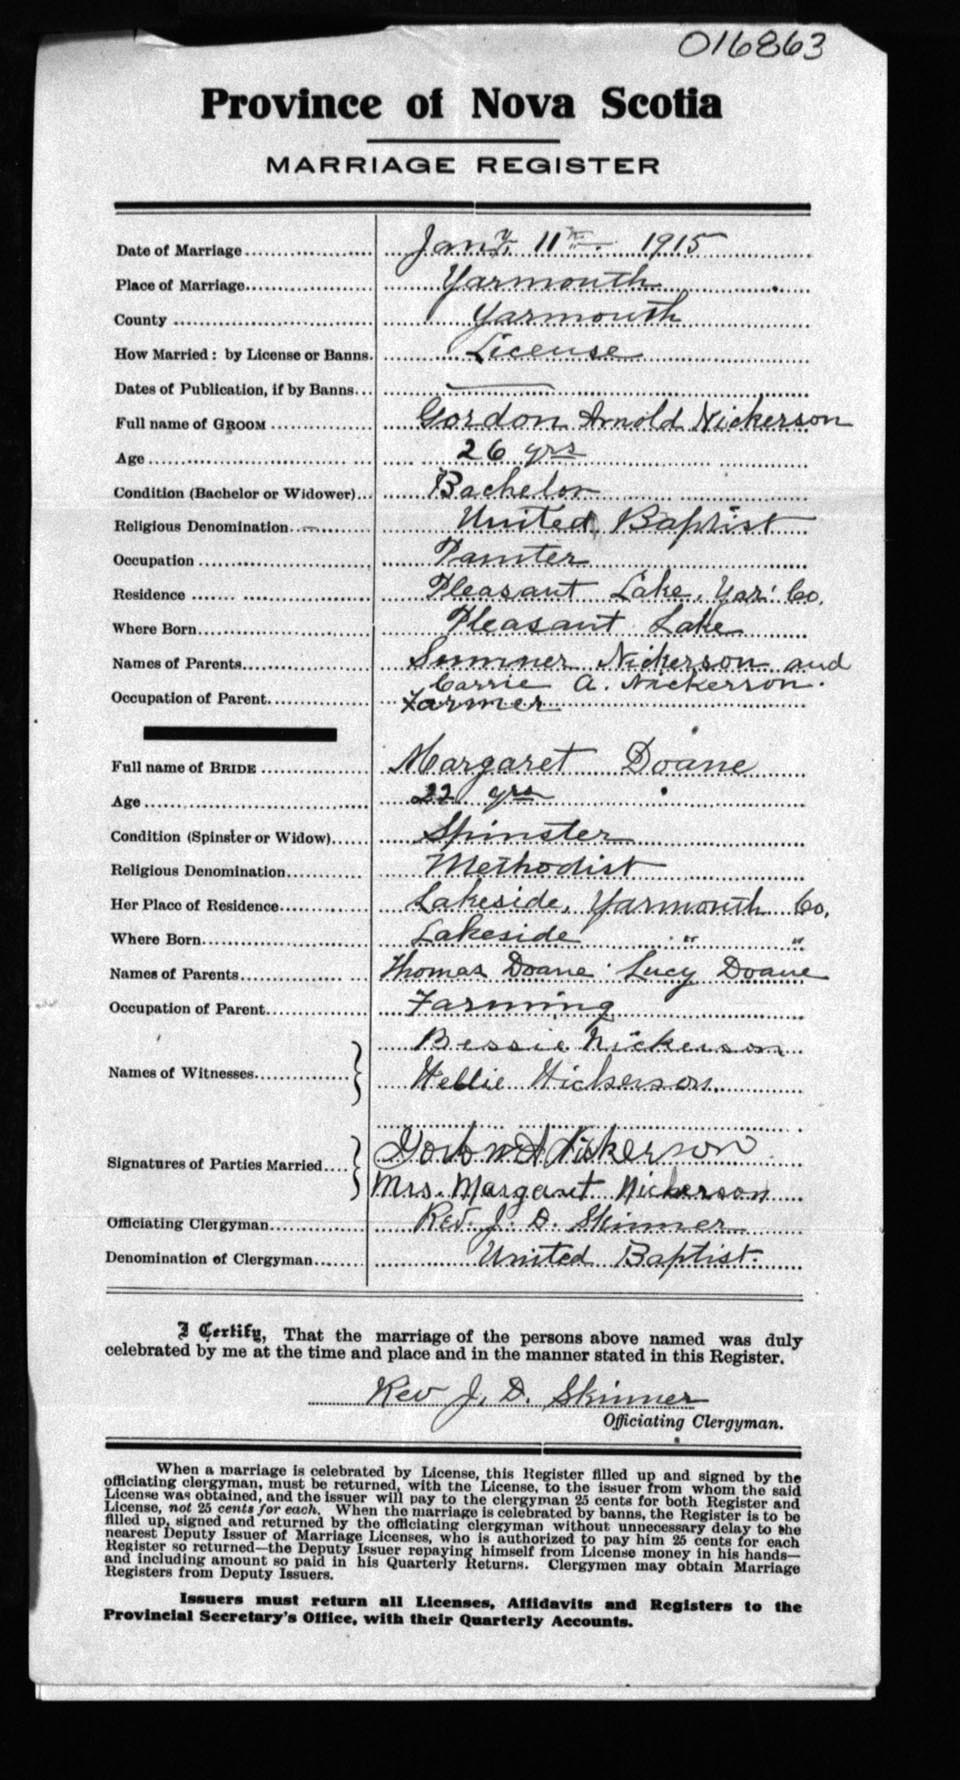 016863
Province of Nova Scotia
MARRIAGE REGISTER
Date of Marriage Jany. 11th. 1915
Place of Marriage Yarmouth
County Yarmouth
How Married: by License or Banns. License
Dates of Publication, if by Banns
Full name of GROOM Gordon Arnold Nickerson
Age 26 yrs
Condition (Bachelor or Widower) Bachelor
Religious Denomination United Baptist
Occupation Painter
Residence Pleasant Lake, Yar. Co.
Where Born Pleasant Lake
Names of Parents Sumner Nickerson and
Carrie A. Nickerson.
Occupation of Parent Farmer
Full name of BRIDE Margaret Doane
Age 22 yrs
Condition (Spinster or Widow) Spinster
Religious Denomination Methodist
Her Place of Residence Lakeside, Yarmouth Co.
Where Born Lakeside " "
Names of Parents Thomas Doane Lucy Doane
Occupation of Parent Farming
Bessie Nickerson
Names of Witnesses
Nellie Nickerson.
Gordon A Nickerson
Signatures of Parties Married
Mrs. Margaret Nickerson
Officiating Clergyman Rev. J. D. Skinner
Denomination of Clergyman United Baptist.
I Certify, That the marriage of the persons above named was duly
celebrated by me at the time and place and in the manner stated in this Register.
Rev J. D. Skinner
Officiating Clergyman.
When a marriage is celebrated by License, this Register filled up and signed by the
officiating clergyman, must be returned, with the License, to the issuer from whom the said
License was obtained, and the issuer will pay to the clergyman 25 cents for both Register and
License, not 25 cents for each. When the marriage is celebrated by banns, the Register is to be
filled up, signed and returned by the officiating clergyman without unnecessary delay to the
nearest Deputy Issuer of Marriage Licenses, who is authorized to pay him 25 cents for each
Register so returned—the Deputy Issuer repaying himself from License money in his hands—
and including amount so paid in his Quarterly Returns. Clergymen may obtain Marriage
Registers from Deputy Issuers.
Issuers must return all Licenses, Affidavits and Registers to the
Provincial Secretary's Office, with their Quarterly Accounts.